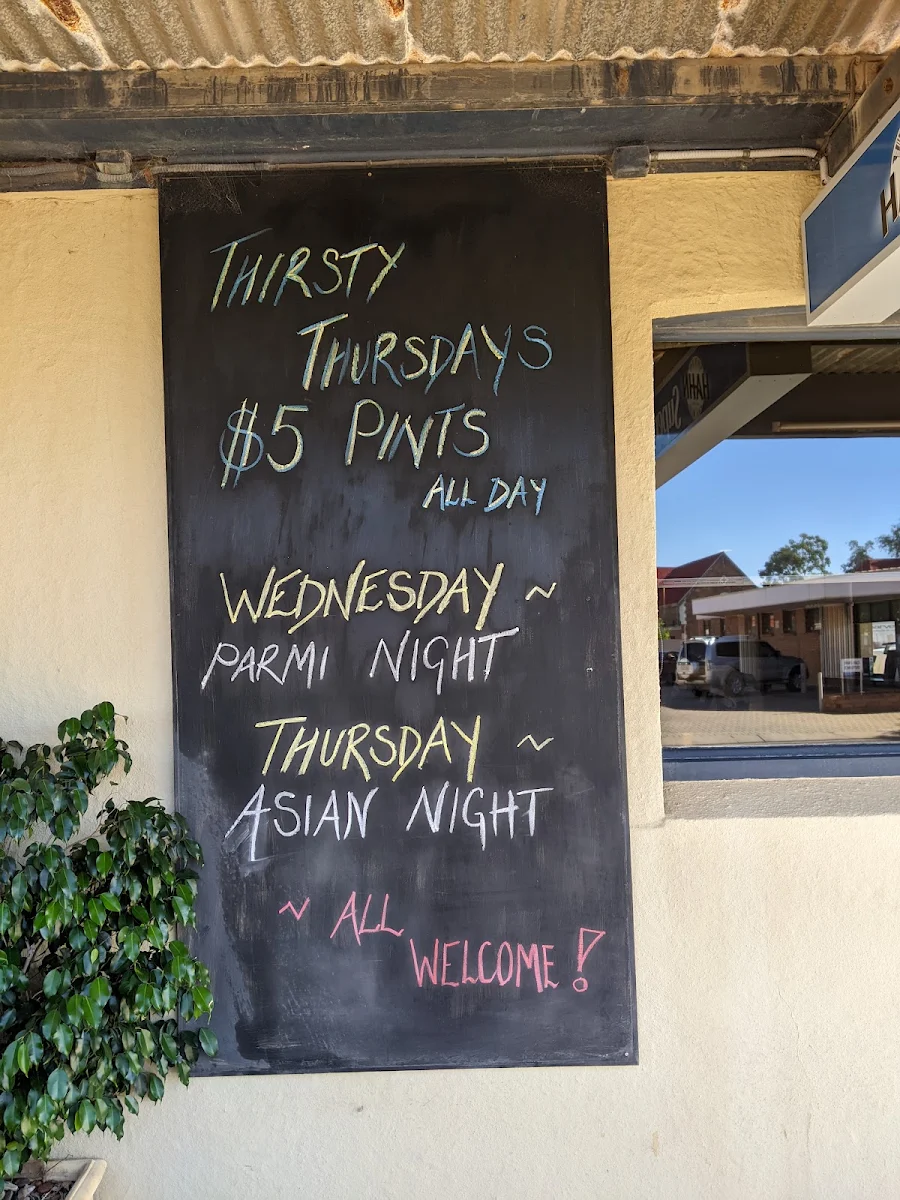 THIRSTY
THURSDAYS
$5 PINTS
ALL DAY
WEDNESDAY ~
PARMI NIGHT
THURSDAY ~
ASIAN NIGHT
~ ALL
WELCOME!
HAHN